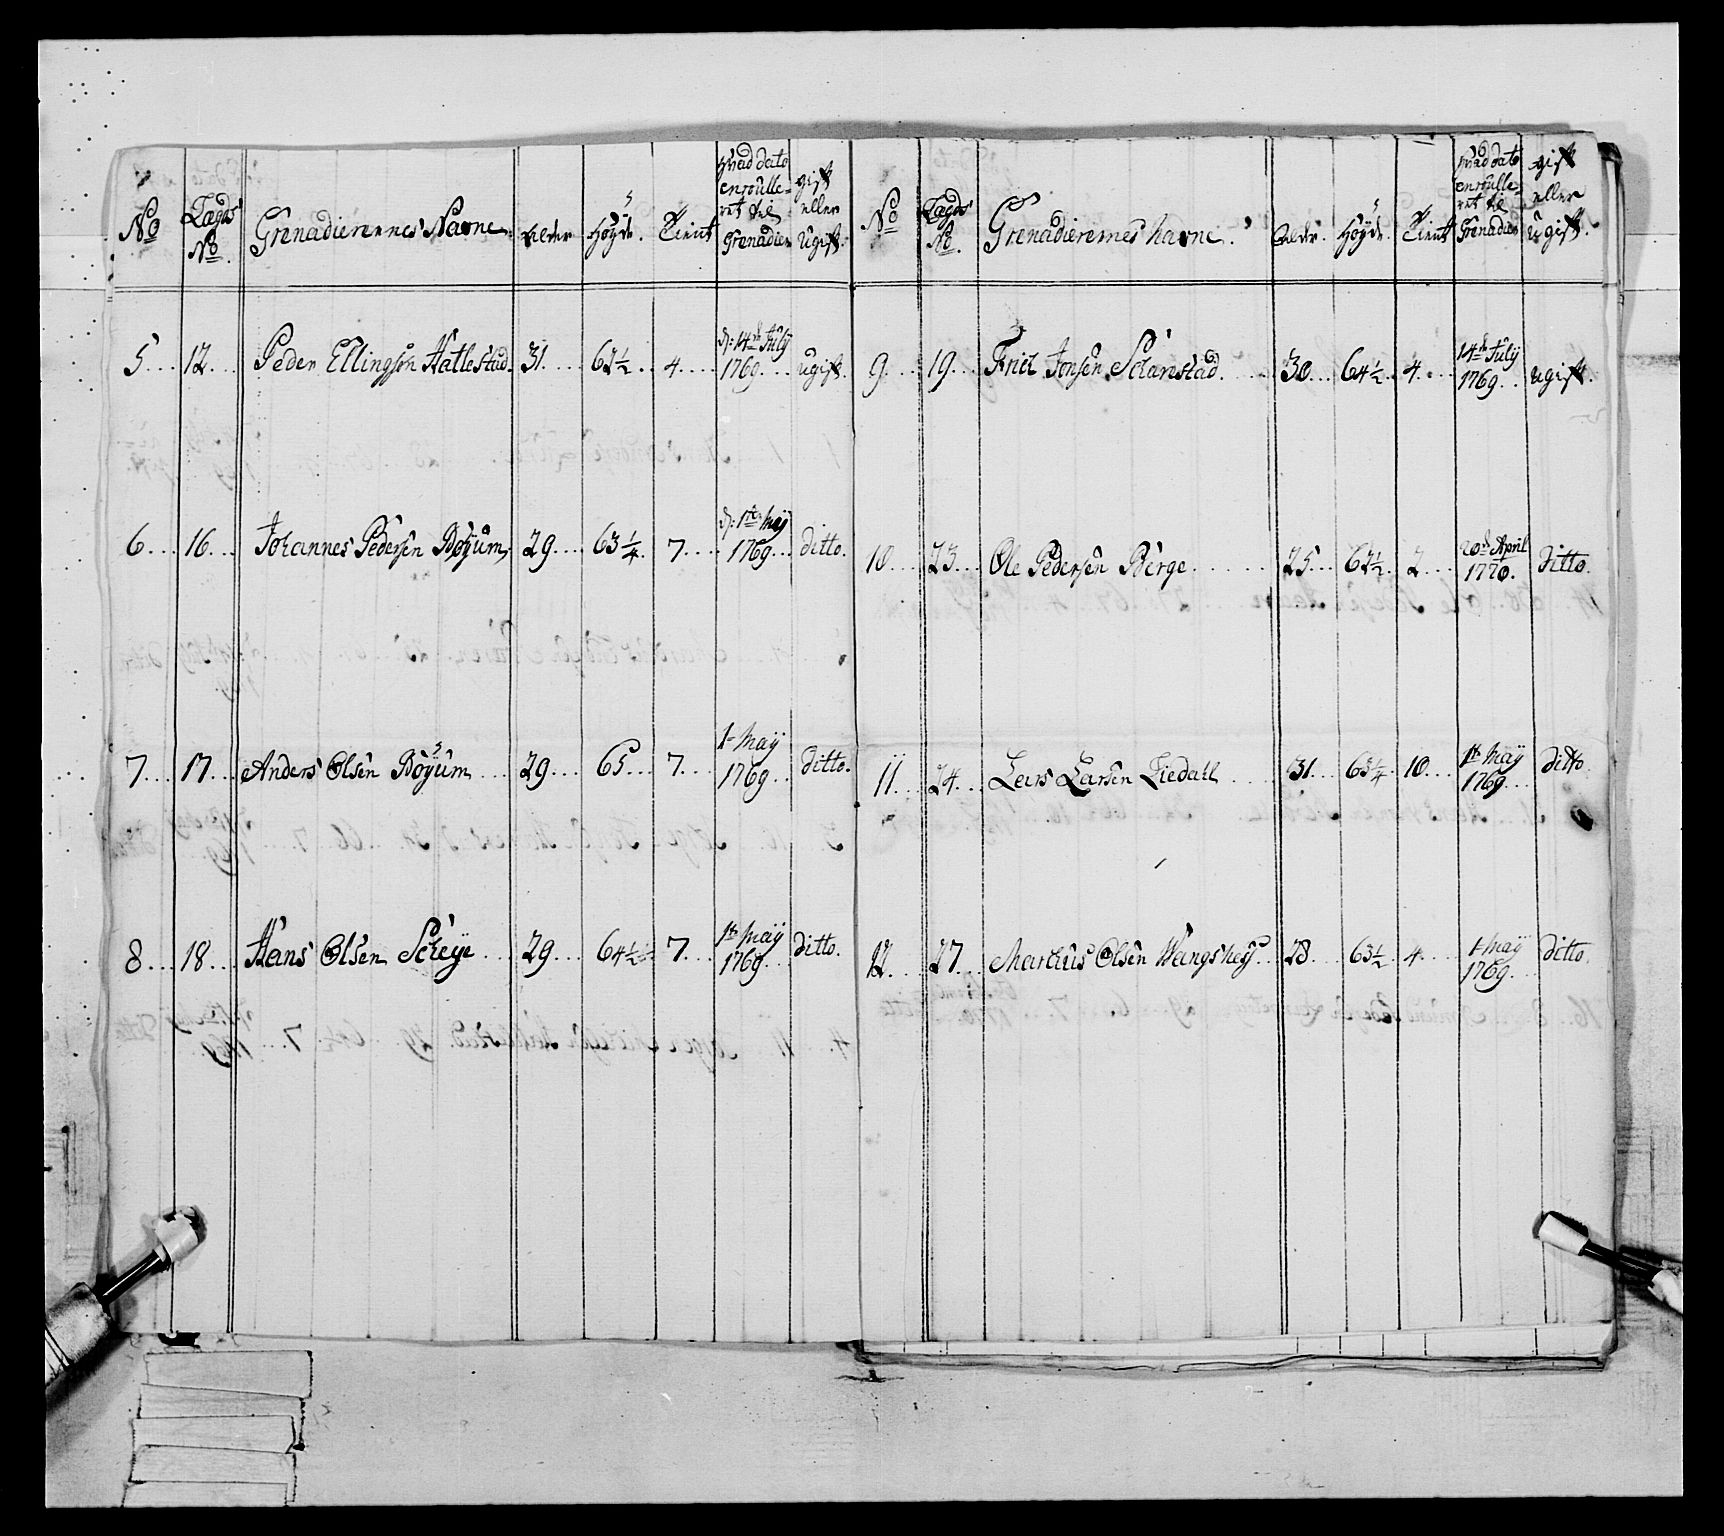 No | Lægds No | Grenadierernes Navne | Alder | Höyde | Tient | Hvad dato enroulleret til Grenadier | gift eller Ugift
5 | 12 | Peder Ellingsen Hatlestad | 31 | 63½ | 4 | d: 14de July 1769 | ugift
6 | 16 | Johannes Pedersen Böyum | 29 | 63¼ | 7 | d: 1te May 1769 | ditto
7 | 17 | Anders Olsen Böyum | 29 | 65 | 7 | 1 May 1769 | ditto
8 | 18 | Hans Olsen Scheye | 29 | 64½ | 7 | 1te May 1769 | ditto
No | Lægds No | Grenadierernes navne | Alder | Höyde | Tient | Hvad dato enroulleret til Grenadier | gift eller Ugift
9 | 19 | Frich Jonsen Scharestad | 30 | 64½ | 4 | 14de July 1769 | ugift
10 | 23 | Ole Pedersen Berge | 25 | 62½ | 2 | 20de April 1770 | Ditto
11 | 24 | Lars Larsen Liedahl | 31 | 63¼ | 10 | 1te May 1769 | ditto
12 | 27 | Marthus Olsen Wangsnes | 28 | 63½ | 4 | 1 May 1769 | ditto